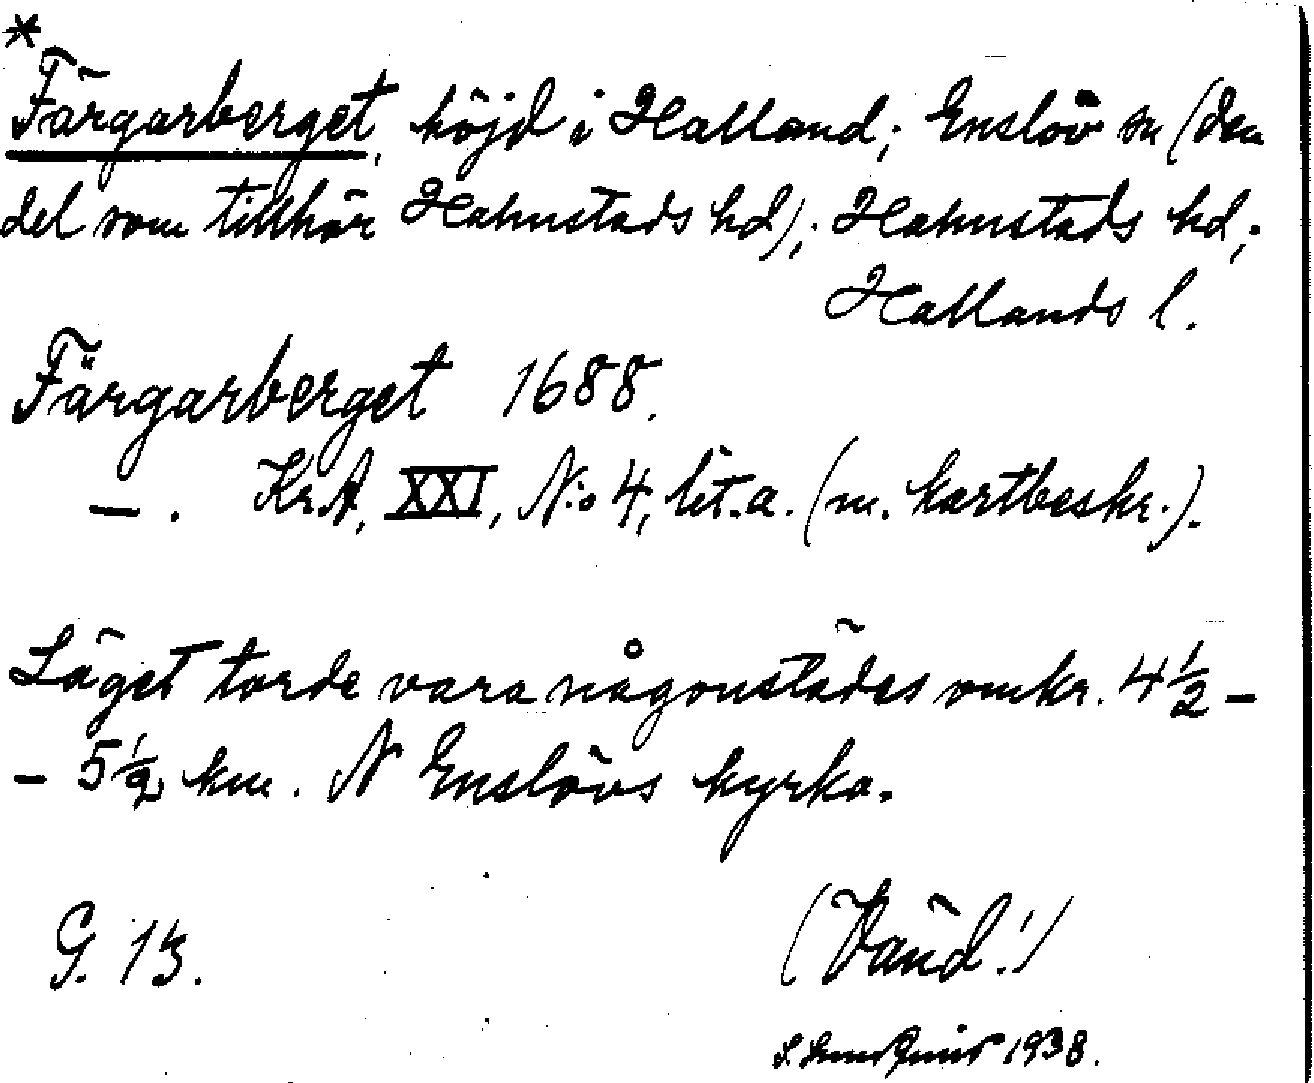 *
Färgarberget, höjd i Halland; Enslöv sn (den
del som tillhör Halmstads hd); Halmstads hd;
Hallands l.
Färgarberget 1688.
—. Kr.A, XXI, N:o 4, lit.a. (m. kartbeskr.).
Läget torde vara någonstädes omkr. 4½ –
– 5½ km. N Enslövs kyrka.
G. 13.
(Vänd!)
1938.